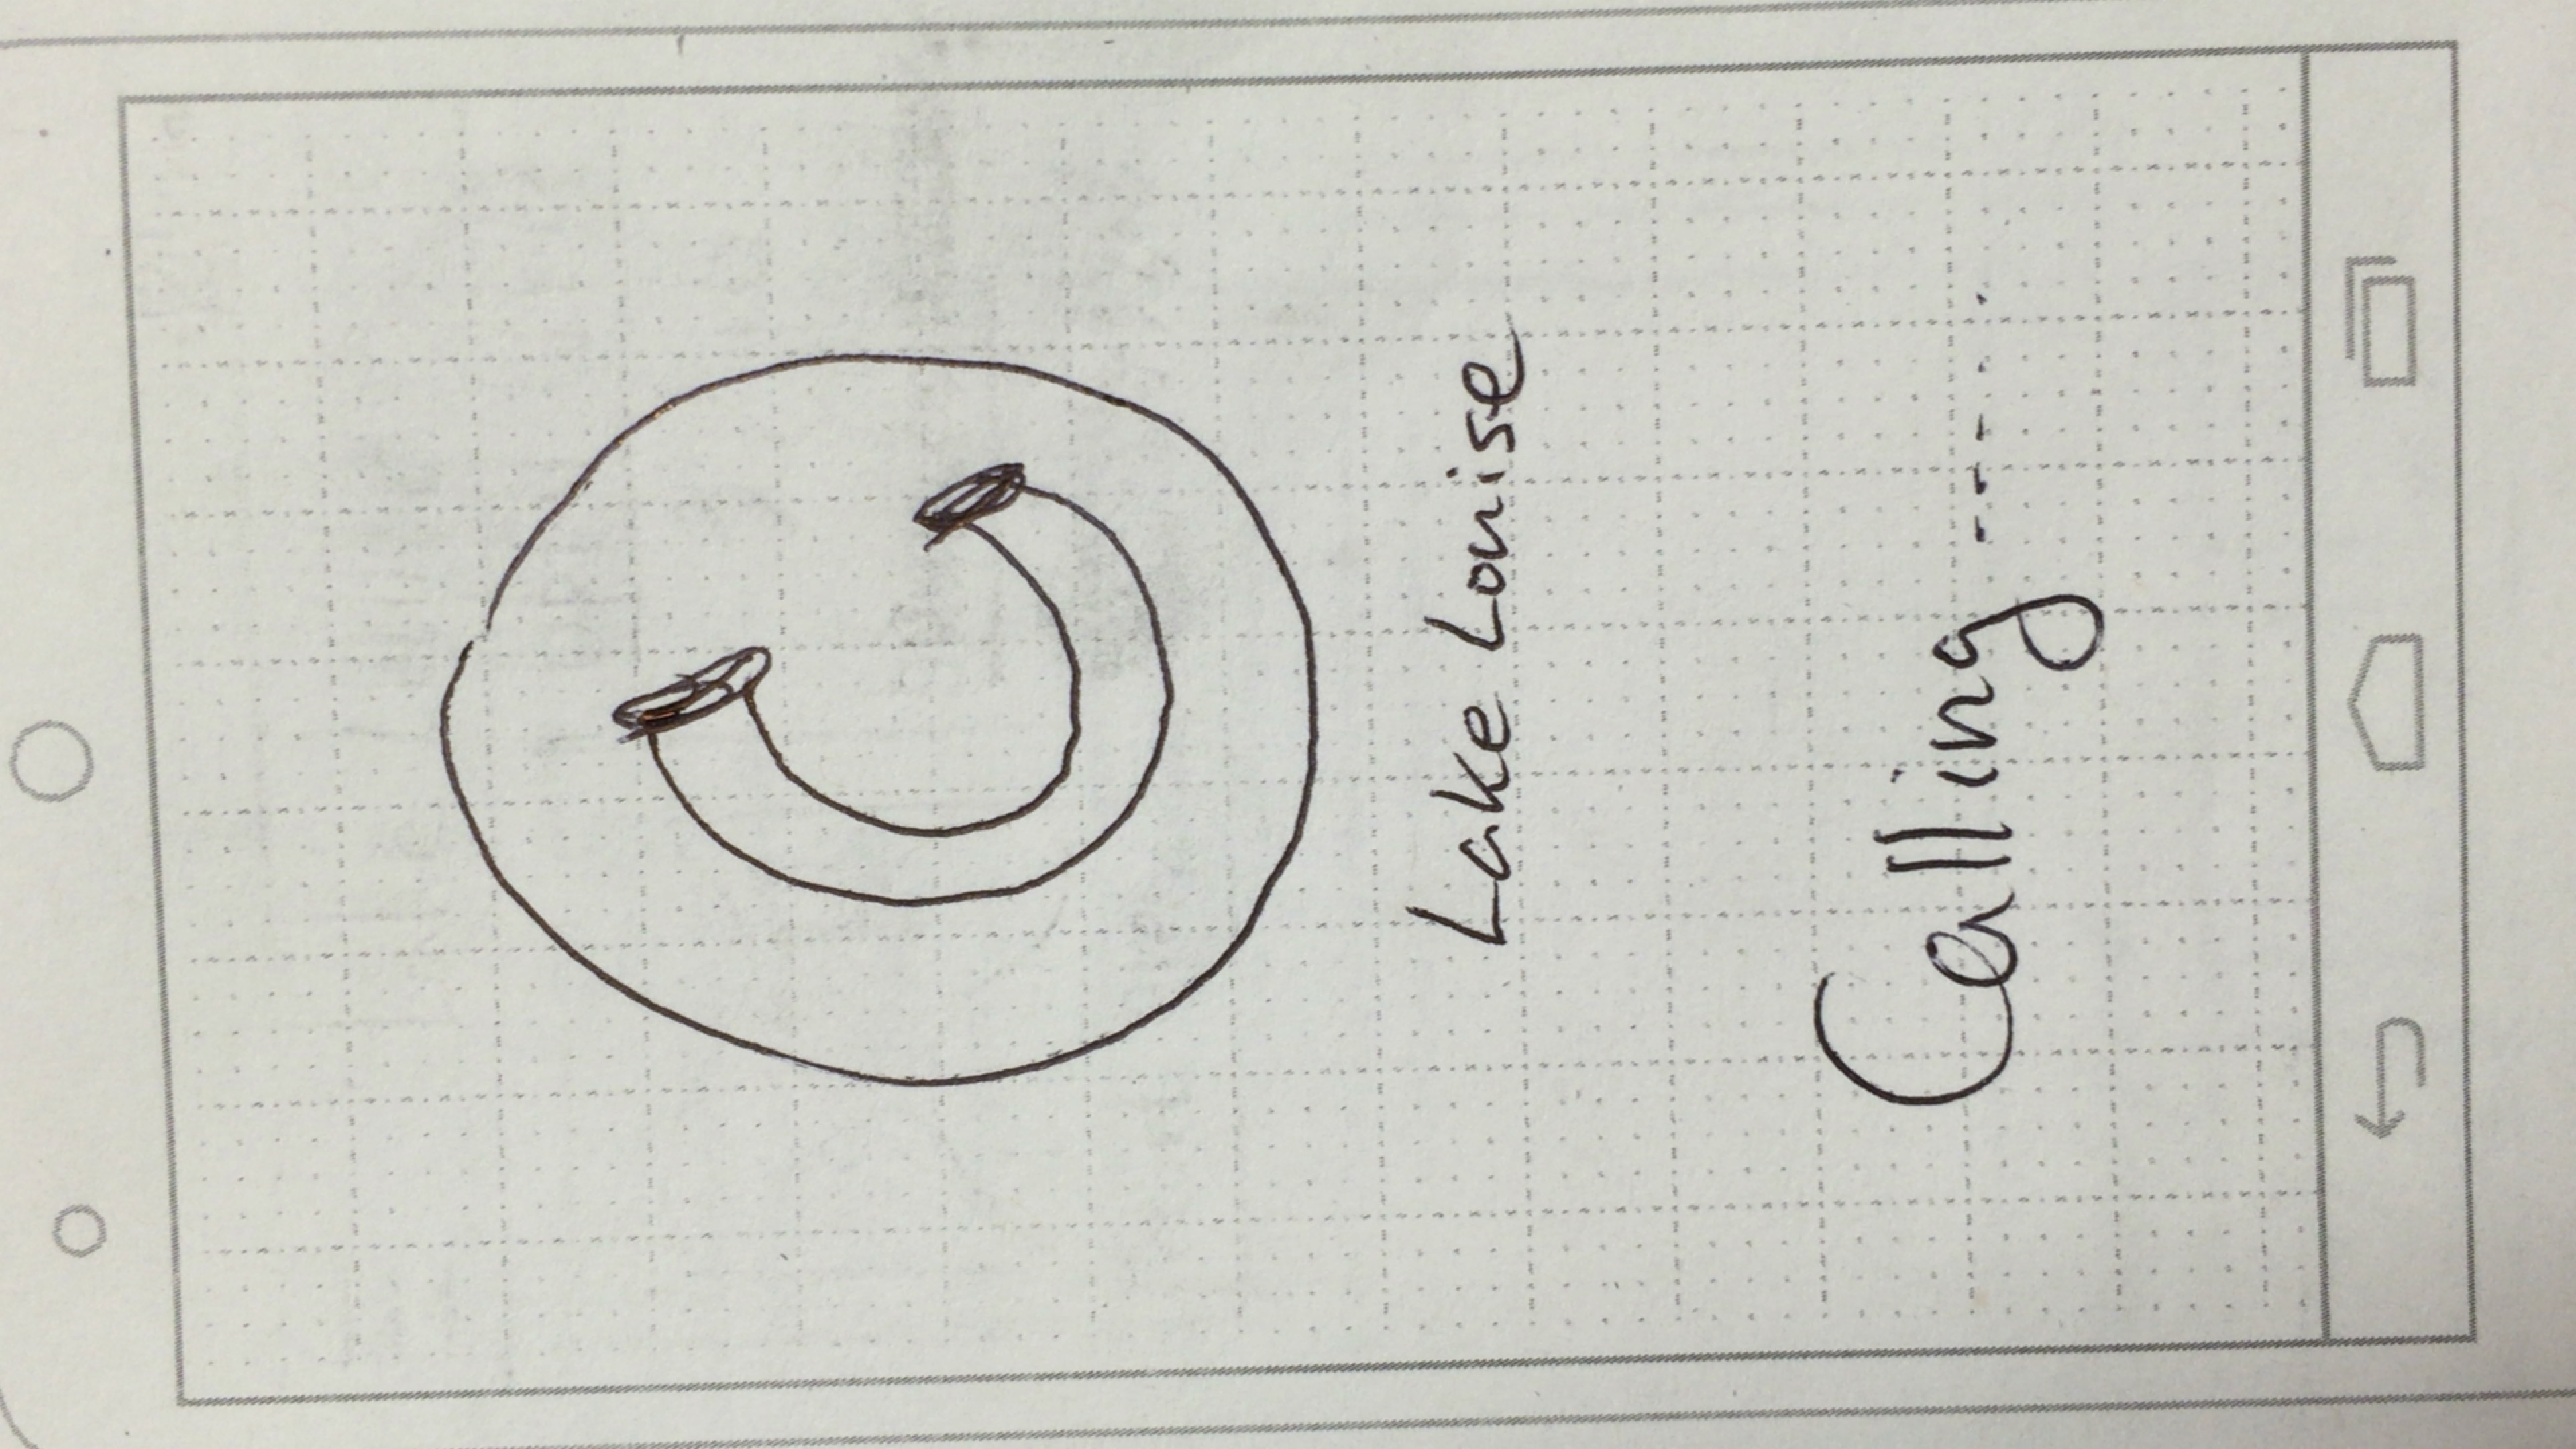 Lake Louise
Calling ------